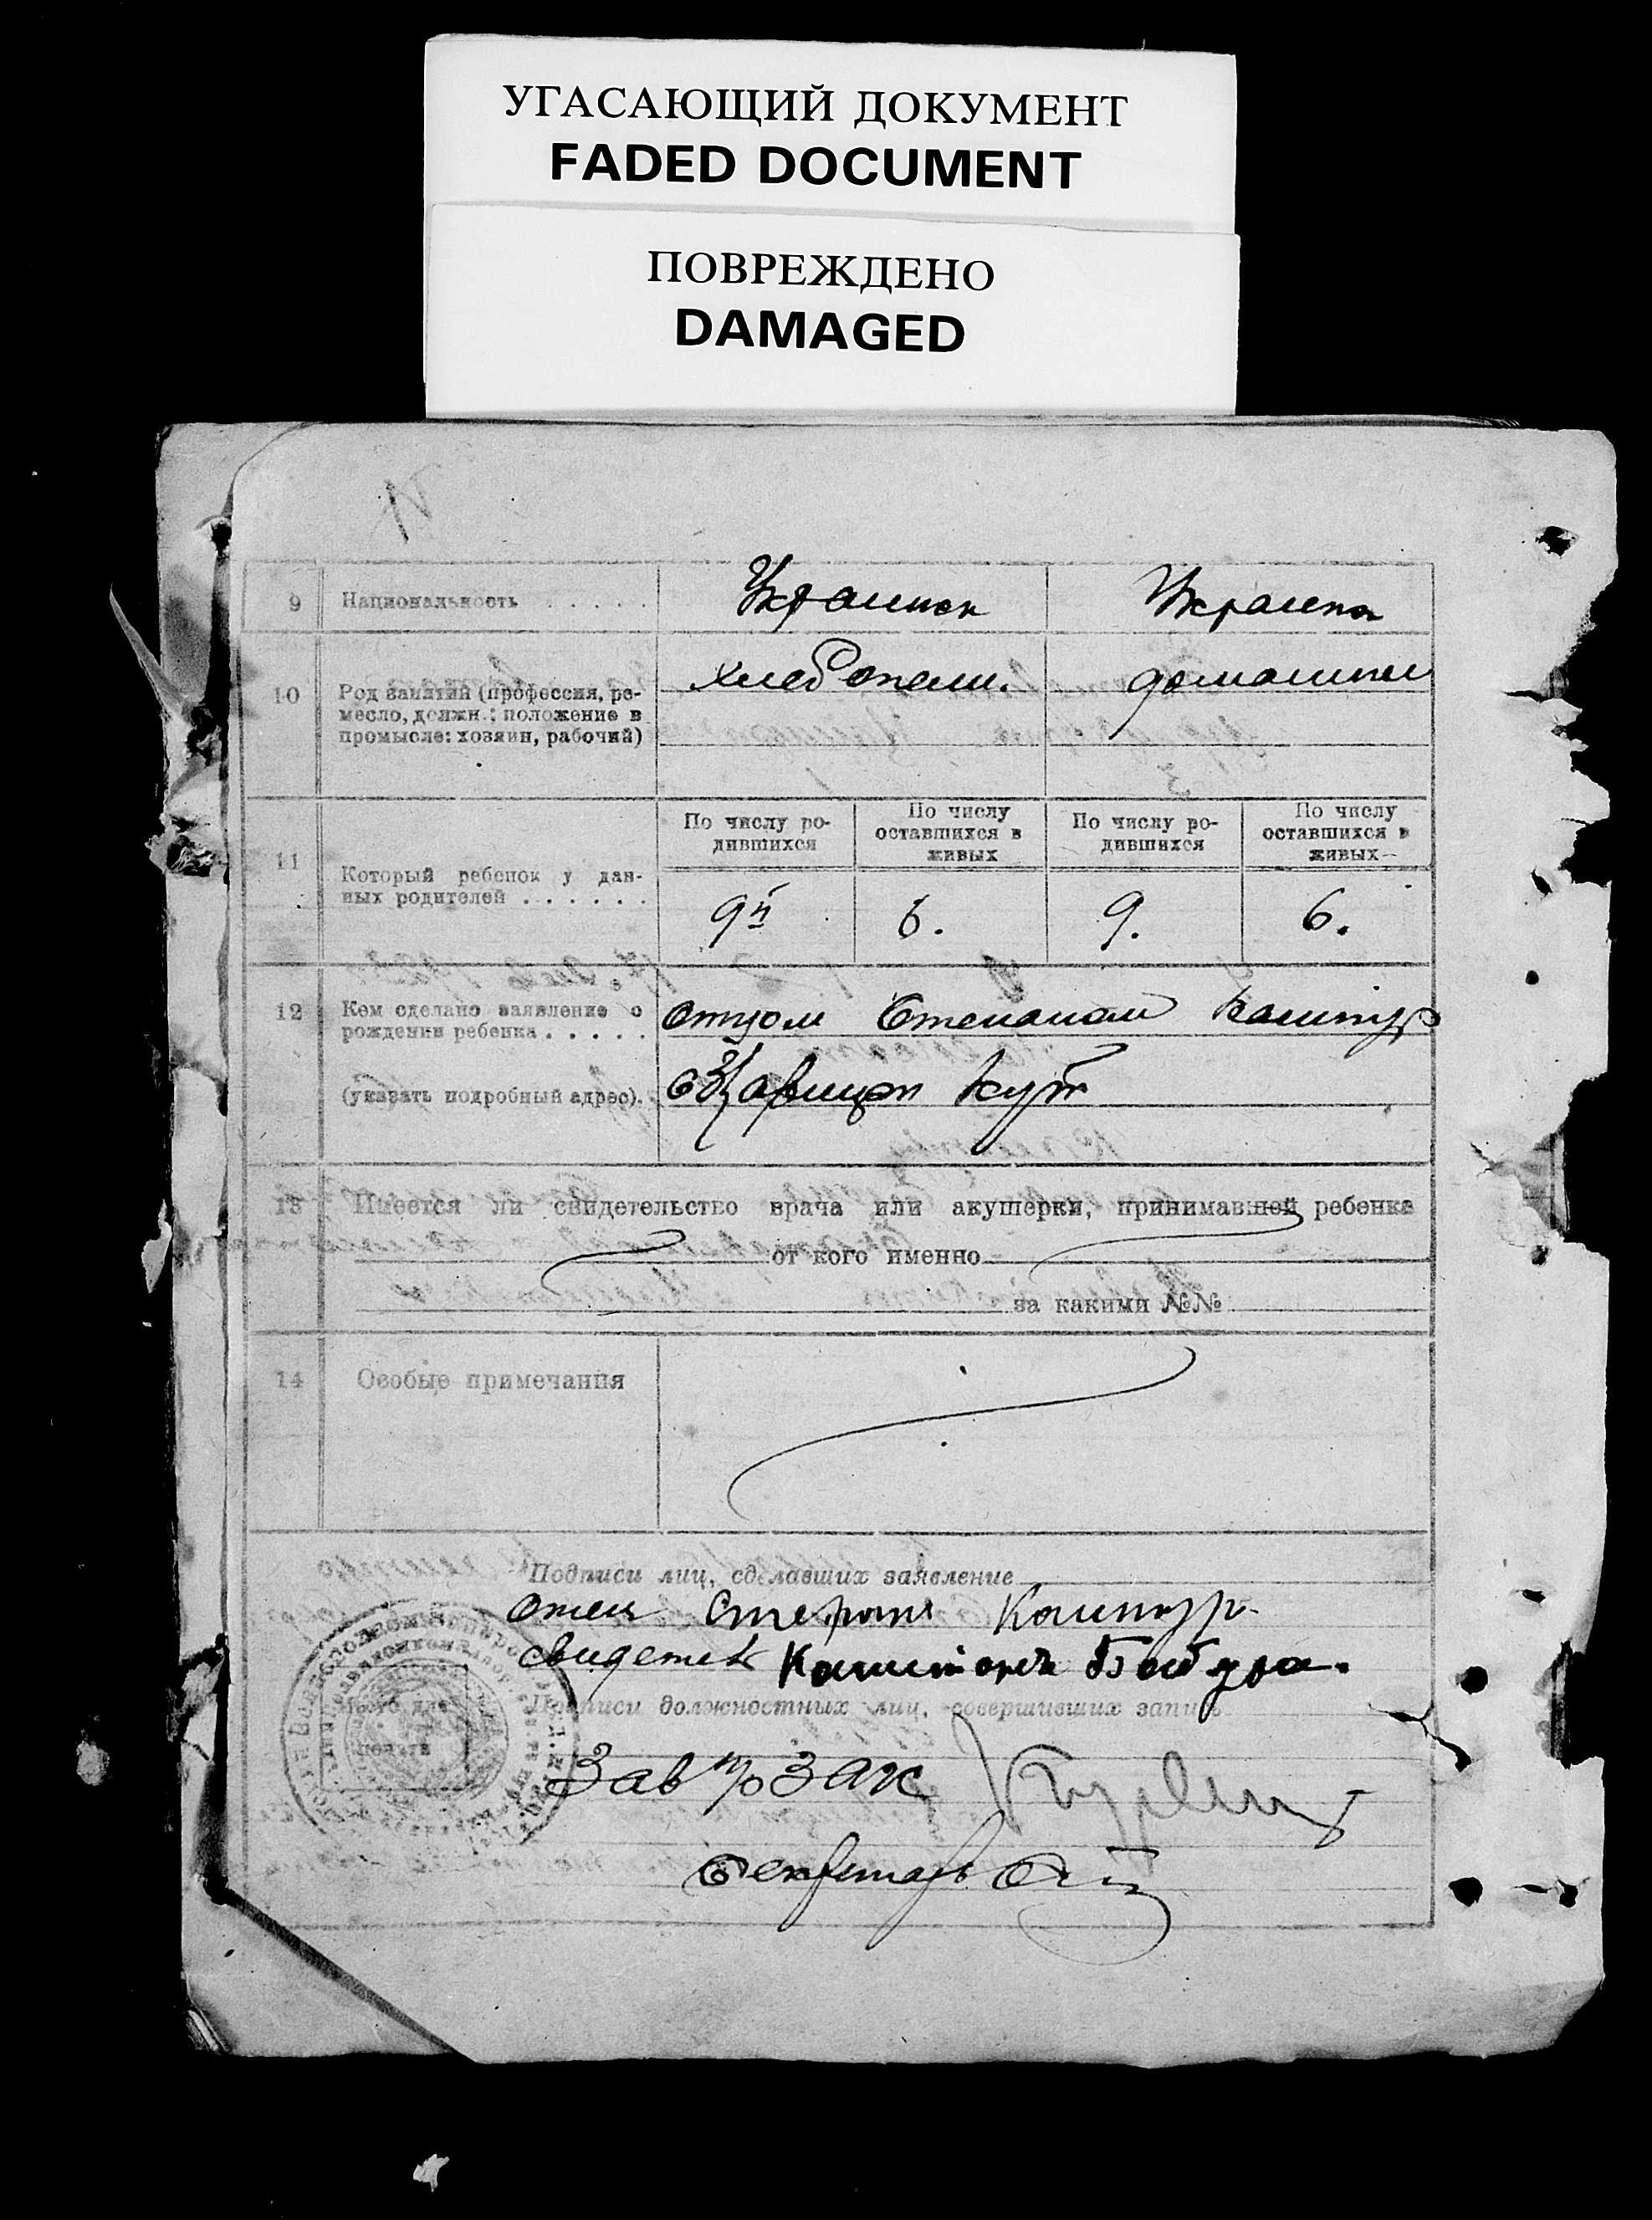 УГАСАЮЩИЙ ДОКУМЕНТ
FADED DOCUMENT
ПОВРЕЖДЕНО
DAMAGED
9 Национальность . . . . . Украинец Украинка
10 Род занятий (профессия, ре-
месло, должн.: положение в
промысле: хозяин, рабочий)
хлебопаш. домашняя
11 Который ребенок у дан-
ных родителей . . . . . .
По числу ро-
дившихся
По числу
оставшихся в
живых
По числу ро-
дившихся
По числу
оставшихся в
живых
9й 6. 9. 6.
12 Кем сделано заявление о
рождении ребенка . . . . .
отцом Степаном Каштур
(указать подробный адрес).
Кут
13 Имеется ли свидетельство врача или акушерки, принимавшей ребенка
от кого именно
за какими №№
14 Особые примечания
Подписи лиц, сделавших заявление
отец Степан Каштур
свидетель
Подписи должностных лиц, совершивших запись
Зав п/о Загс
Секретарь